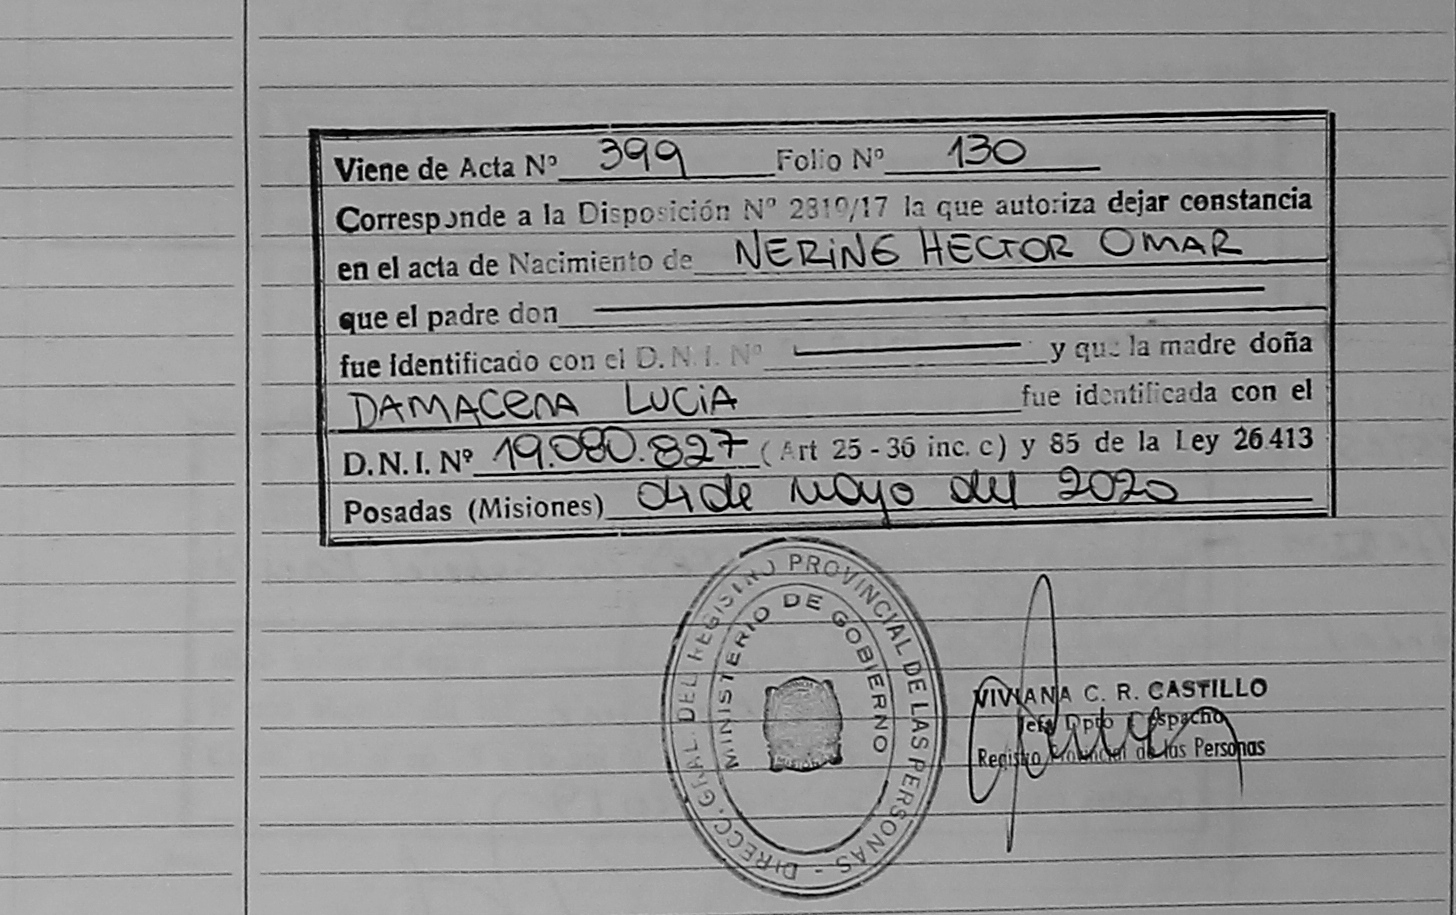 Viene de Acta Nº 399 Folio Nº 130
Corresponde a la Disposición Nº 2819/17 la que autoriza dejar constancia
en el acta de Nacimiento de NERING HECTOR OMAR
que el padre don
fue identificado con el D.N.I. Nº y que la madre doña
DAMACENA LUCIA fue identificada con el
D.N.I. Nº 19.080.827 (Art 25 - 36 inc. c) y 85 de la Ley 26.413
Posadas (Misiones) 04 de mayo del 2020
DIRECC. GRAL. DEL REGISTRO PROVINCIAL DE LAS PERSONAS -
MINISTERIO DE GOBIERNO
VIVIANA C. R. CASTILLO
Jefa Dpto Despacho
Registro Provincial de las Personas